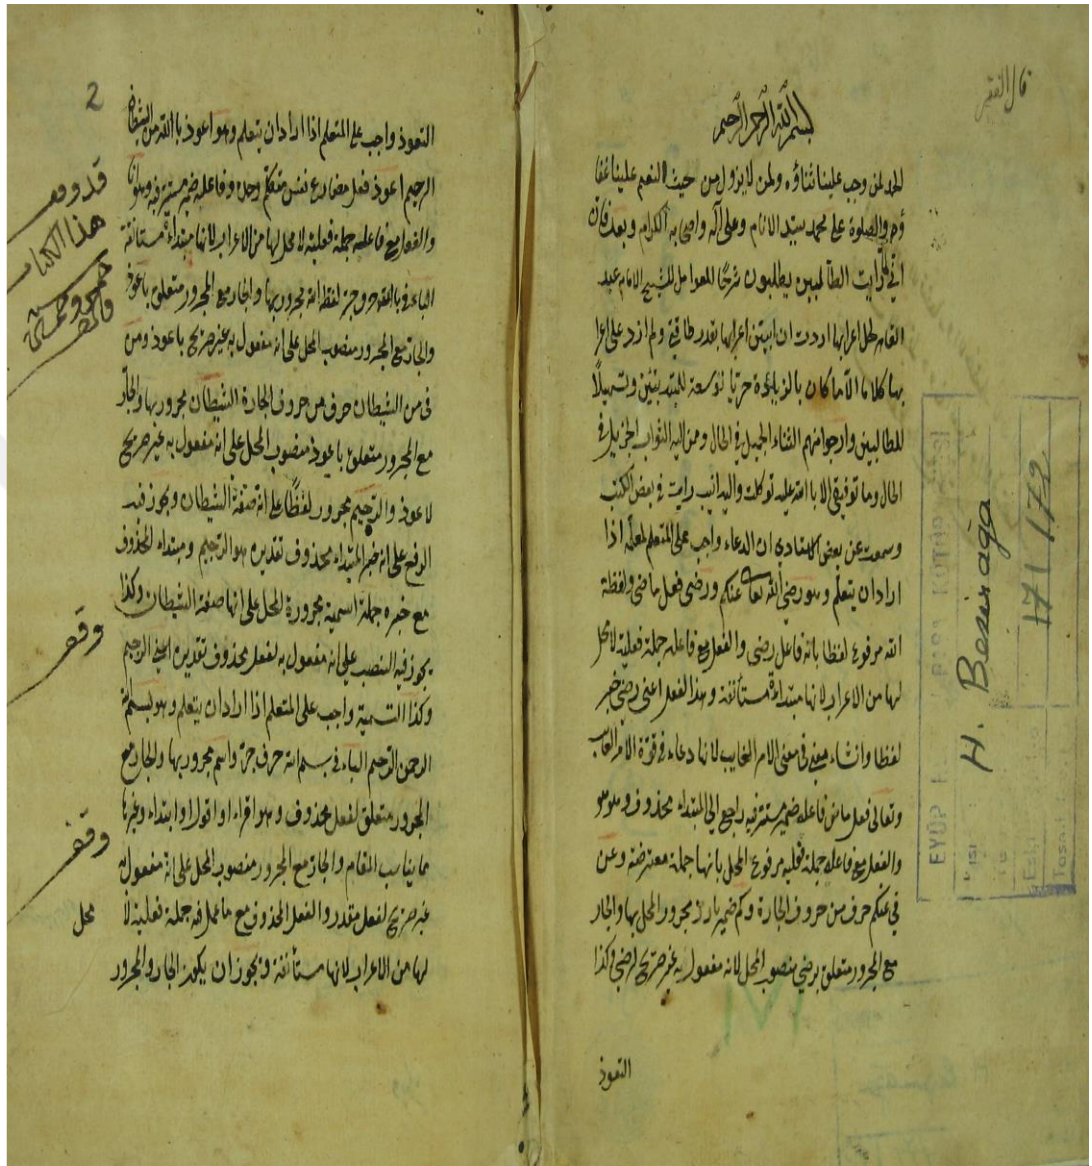 قال الفقير
بسم الله الرحمن الرحيم
الحمد لمن وجب علينا ثناؤه ولمن لا يزول من حيث النعم علينا
والصلوة على محمد سيد الانام وعلى آله واصحابه الكرام وبعد فان
اني لما رايت الطالبين يطلبون شرحا لعوامل للشيخ الامام عبد
القاهر لحل اعرابها اردت ان ابين اعرابها بقدر طاقتي ولم ازد على اعرا
بها كلاما الا ما كان بالزيادة حريا توسعة للمبتدئين وتسهيلا
للطالبين وارجو منهم الثناء الجميل في الحال ومن اليه الثواب الجزيل في
الحال وما توفيقي الا باالله عليه توكلت واليه انيب رايت في بعض الكتب
وسمعت عن بعض ان الدعاء واجب على المتعلم لمعلمه اذا
اراد ان يتعلم وهو رضي الله تعا عنكم ورضى فعل ماضى ولفظة
الله مرفوع لفظا بانه فاعل رضى والفعل مع فاعله جملة فعلية لا محل
لها من الاعراب لانها مبتداءة مستأنفة وهذا الفعل اعنى رضي خبر
لفظا وانشاء معنى في معنى الامر الغايب لانها دعاء في قوة الامر الغايب
وتعالى فعل ماض فاعله ضمير مستتر فيه راجع الى المبتداء محذوف وهو هو
والفعل مع فاعله جملة فعليه مرفوع المحل بانها جملة معترضة وعن
في عنكم حرف من حروف الجارة وكم ضمير بارز مجرور المحل بها والجار
مع المجرور متعلق برضي منصوب المحل لانه مفعول به غير صريح لرضي وكذا
التعوذ
EYÜP
H. Beşirağa
171/172
١٧١
2
التعوذ واجب على المتعلم اذا اراد ان يتعلم وهو اعوذ باالله من الشيطان
الرجيم اعوذ فعل مضارع نفس متكلم وحده وفاعله ضمير مستتر فيه وهو انا
والفعل مع فاعله جملة فعلية لا محل لها من الاعراب لانها مبتداءة مستأنفة
الباء في باالله حرف جر لفظة الله مجرور بها والجار مع المجرور متعلق باعوذ
والجار مع المجرور منصوب المحل على انه مفعول به غير صريح باعوذ ومن
في من الشيطان حرف من حروف الجارة الشيطان مجرور بها والجار
مع المجرور متعلق باعوذ منصوب المحل على انه مفعول به غير صريح
لاعوذ والرجيم مجرور لفظا على انه صفة الشيطان ويجوز فيه
الرفع على انه خبر المبتداء محذوف تقديره هو الرجيم ومبتداء المحذوف
مع خبره جملة اسمية مجرورة المحل على انها صفة الشيطان وكذا
يجوز فيه النصب على انه مفعول به لفعل محذوف تقديره اعنى الرجيم
وكذا التسمية واجب على المتعلم اذا اراد ان يتعلم وهو بسم الله
الرحمن الرحيم الباء في بسم الله حرف جر واسم مجرور بها والجار مع
المجرور متعلق لفعل محذوف وهو اقراء او اقول او ابتداء وغيرها
مما يناسب المقام والجار مع المجرور منصوب المحل على انه مفعول به
غير صريح لفعل مقدر والفعل المحذوف مع ما عمل فيه جملة فعلية لا
محل
لها من الاعراب لانها مستأنفة ويجوز ان يكون الجار والمجرور
قد وقف
هذا الكتاب
وقف
وقف